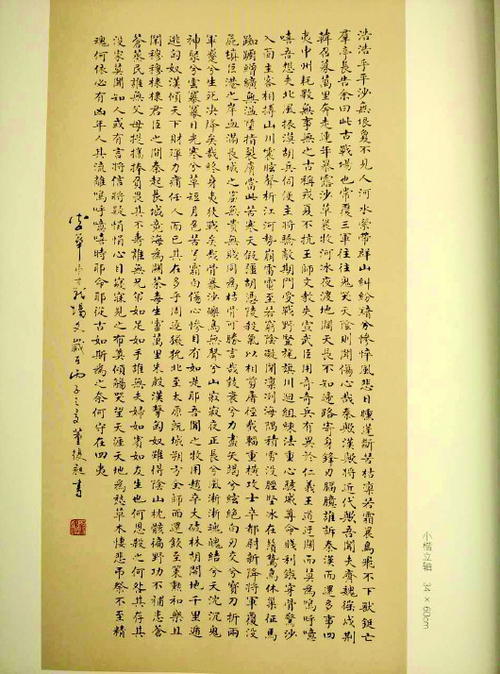 浩浩乎平沙無垠夐不見人河水縈帶群山糾紛黯兮慘悴風悲日曛蓬斷草枯凜若霜晨鳥飛不下獸鋌亡
群亭長告余曰此古戰場也常覆三軍往往鬼哭天陰則聞傷心哉秦歟漢歟將近代歟吾聞夫齊魏徭戍荊
韓召募萬里奔走連年暴露沙草晨牧河冰夜渡地闊天長不知歸路寄身鋒刃腷臆誰訴秦漢而還多事四
夷中州耗斁無世無之古稱戎夏不抗王師文教失宣武臣用奇奇兵有異於仁義王道迂闊而莫為嗚呼噫
嘻吾想夫北風振漠胡兵伺便主將驕敵期門受戰野豎旄旗川迴組練法重心駭威尊命賤利鏃穿骨驚沙
入面主客相搏山川震眩聲析江河勢崩雷電至若窮陰凝閉凜冽海隅積雪沒脛堅冰在鬚鷙鳥休巢征馬
踟躕繒纊無溫墮指裂膚當此苦寒天假強胡憑陵殺氣以相剪屠徑截輜重橫攻士卒都尉新降將軍覆沒
屍填巨港之岸血滿長城之窟無貴無賤同為枯骨可勝言哉鼓衰兮力盡矢竭兮弦絕白刃交兮寶刀折兩
軍蹙兮生死決降矣哉終身夷狄戰矣哉骨暴沙礫鳥無聲兮山寂寂夜正長兮風淅淅魂魄結兮天沉沉鬼
神聚兮雲冪冪日光寒兮草短月色苦兮霜白傷心慘目有如是耶吾聞之牧用趙卒大破林胡開地千里遁
逃匈奴漢傾天下財殫力痡任人而已其在多乎周逐獫狁北至太原既城朔方全師而還飲至策勳和樂且
閑穆穆棣棣君臣之間秦起長城竟海為關荼毒生靈萬里朱殷漢擊匈奴雖得陰山枕骸徧野功不補患蒼
蒼蒸民誰無父母提攜捧負畏其不壽誰無兄弟如足如手誰無夫婦如賓如友生也何恩殺之何咎其存其
沒家莫聞知人或有言將信將疑悁悁心目寢寐見之布奠傾觴哭望天涯天地為愁草木悽悲弔祭不至精
魂何依必有凶年人其流離嗚呼噫嘻時耶命耶從古如斯為之奈何守在四夷
李華弔古戰場文歲在丙子之夏董書
小楷立轴 34×60cm